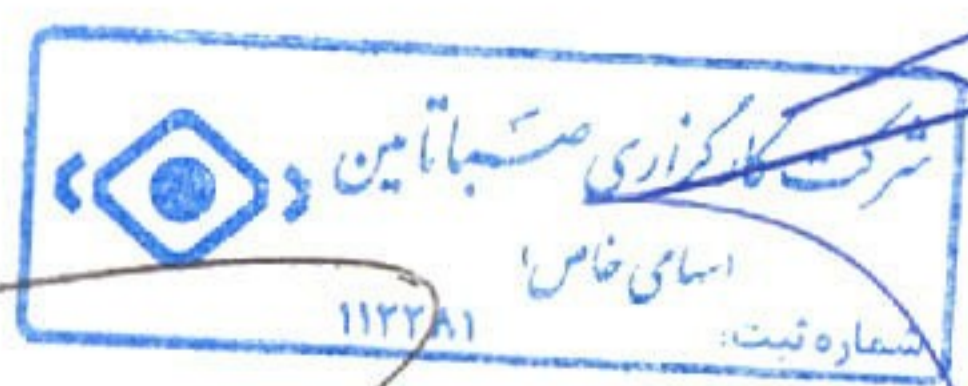 شرکت کارگزاری صباتامین
(سهامی خاص)
شماره ثبت: ۱۱۲۲۸۱